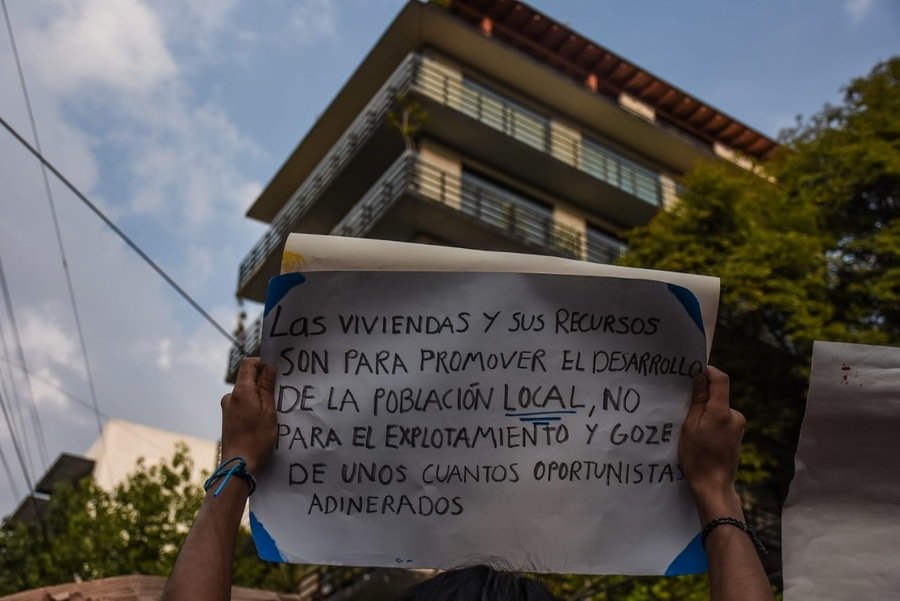 Las VIVIENDAS Y SUS RECURSOS
SON PARA PROMOVER EL DESARROLLO
DE LA POBLACIÓN LOCAL, NO
PARA EL EXPLOTAMIENTO Y GOZE
DE UNOS CUANTOS OPORTUNISTAS
ADINERADOS